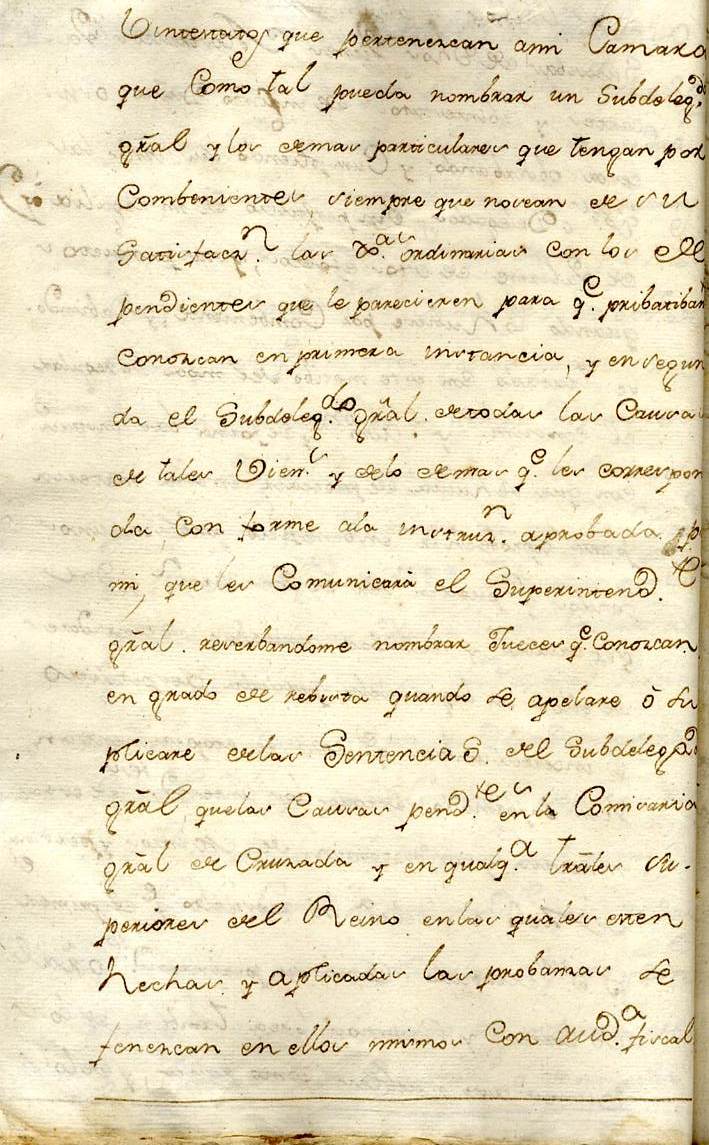 Vintestatos que pertenezcan ami Camara
que Como tal pueda nombrar un Subdeleg.do
gral y los demas particulares que tengan por
Combenientes, siempre que nosean de su
Satisfacz.n las ordinarias con los de
pendientes que le parecieren para q.e pribatibam
Conozcan en primera instancia, y en segun
da el Subdeleg.do gral. de todas las Causas
de tales Vien.s y delo demas q.e les correspon
da, Con forme ala instruz.n aprobada p.r
mi, que les Comunicará el Superintend.te
gral. reserbandome nombrar Jueces q.e Conozcan
en grado de rebista quando se apelare ó su
plicare delas Sentencias del Subdelegad
gral, quelas Causas pend.tes en la Comisaria
gral de Cruzada y en qualq.a trales su-
periores del Reino enlas quales esten
hechas y aplicadas las probanzas se
fenezcan en ellos mismos con aud.a fiscal